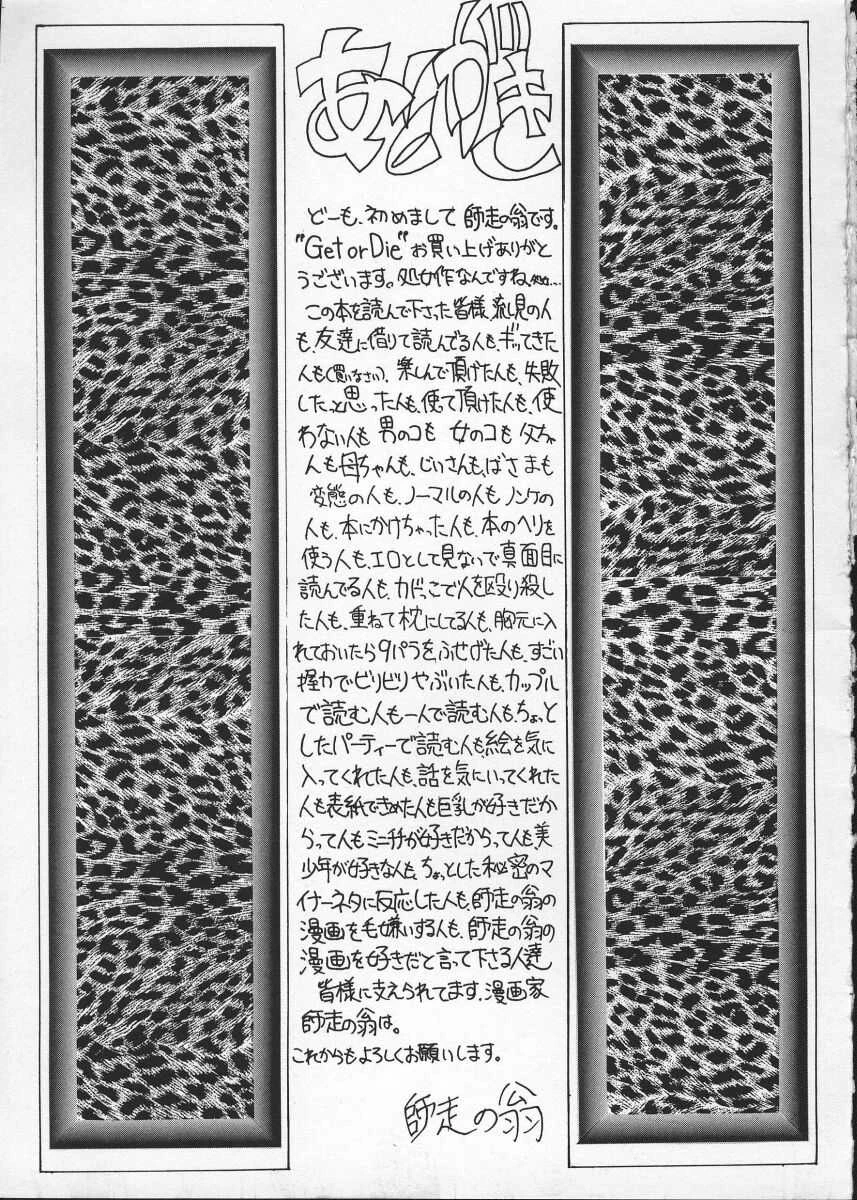 あとがき
どーも、初めまして 師走の翁です。
"Get or Die" お買い上げありがと
うございます。処女作なんですね、
この本を読んで下さった皆様、流し見の人
も、友達に借りて読んでる人も、ギってきた
人も(買いなさい)、楽しんで頂けた人も、失敗
したっと思った人も、使って頂けた人も、使
わない人も 男のコも 女のコも 父ちゃ
人も母ちゃんも、じいさんも、ばさまも
変態の人も、ノーマルの人も ノンケの
人も、本にかけちゃった人も、本のヘリを
使う人も、エロとして見ないで真面目に
読んでる人も、カドっこで人を殴り殺し
た人も、重ねて枕にしてる人も、胸元に入
れておいたら9パラをふせげた人も、すごい
握力でビリビリやぶいた人も、カップル
で読む人も一人で読む人も、ちょっと
したパーティーで読む人も、絵を気に
入ってくれた人も、話を気にいってくれた
人も表紙できめた人も巨乳が好きだか
らって人もミニチチが好きだからって人も美
少年が好きな人も、ちょっとした秘密のマ
イナーネタに反応した人も、師走の翁の
漫画を毛嫌いする人も、師走の翁の
漫画を好きだと言って下さる人達
皆様に支えられてます。漫画家
師走の翁は。
これからもよろしくお願いします。
師走の翁